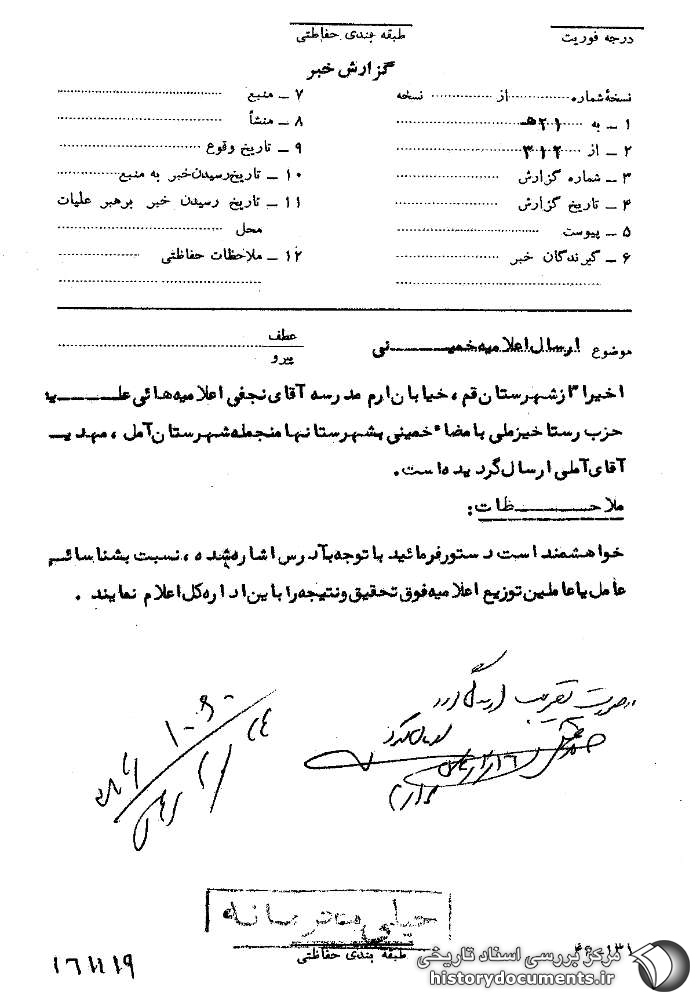 درجه فوریت
طبقه بندی حفاظتی
گزارش خبر
نسخهٔ شماره ............ از ............ نسخه
۱ ـ به ۲۱ هـ
۲ ـ از ۳۱۲
۳ ـ شماره گزارش
۴ ـ تاریخ گزارش
۵ ـ پیوست
۶ ـ گیرندگان خبر
۷ ـ منبع
۸ ـ منشأ
۹ ـ تاریخ وقوع
۱۰ ـ تاریخ رسیدن خبر به منبع
۱۱ ـ تاریخ رسیدن خبر برهبر علیات
محل
۱۲ ـ ملاحظات حفاظتی
موضوع ارسال اعلامیه خمینی
عطف
پیرو
اخیرا" از شهرستان قم ، خیابان ارم مدرسه آقای نجفی اعلامیه هائی علیه
حزب رستاخیز ملی با مضاء خمینی بشهرستانها منجمله شهرستان آمل ، مهدیه
آقای آملی ارسال گردیده است .
ملاحظات :
خواهشمند است دستور فرمائید با توجه بآدرس اشاره شده ، نسبت بشناسائی
عامل یا عاملین توزیع اعلامیه فوق تحقیق و نتیجه را باین اداره کل اعلام نمایند .
خیلی محرمانه
طبقه بندی حفاظتی
۱۶۱۱۱۹
مرکز بررسی اسناد تاریخی
historydocuments.ir